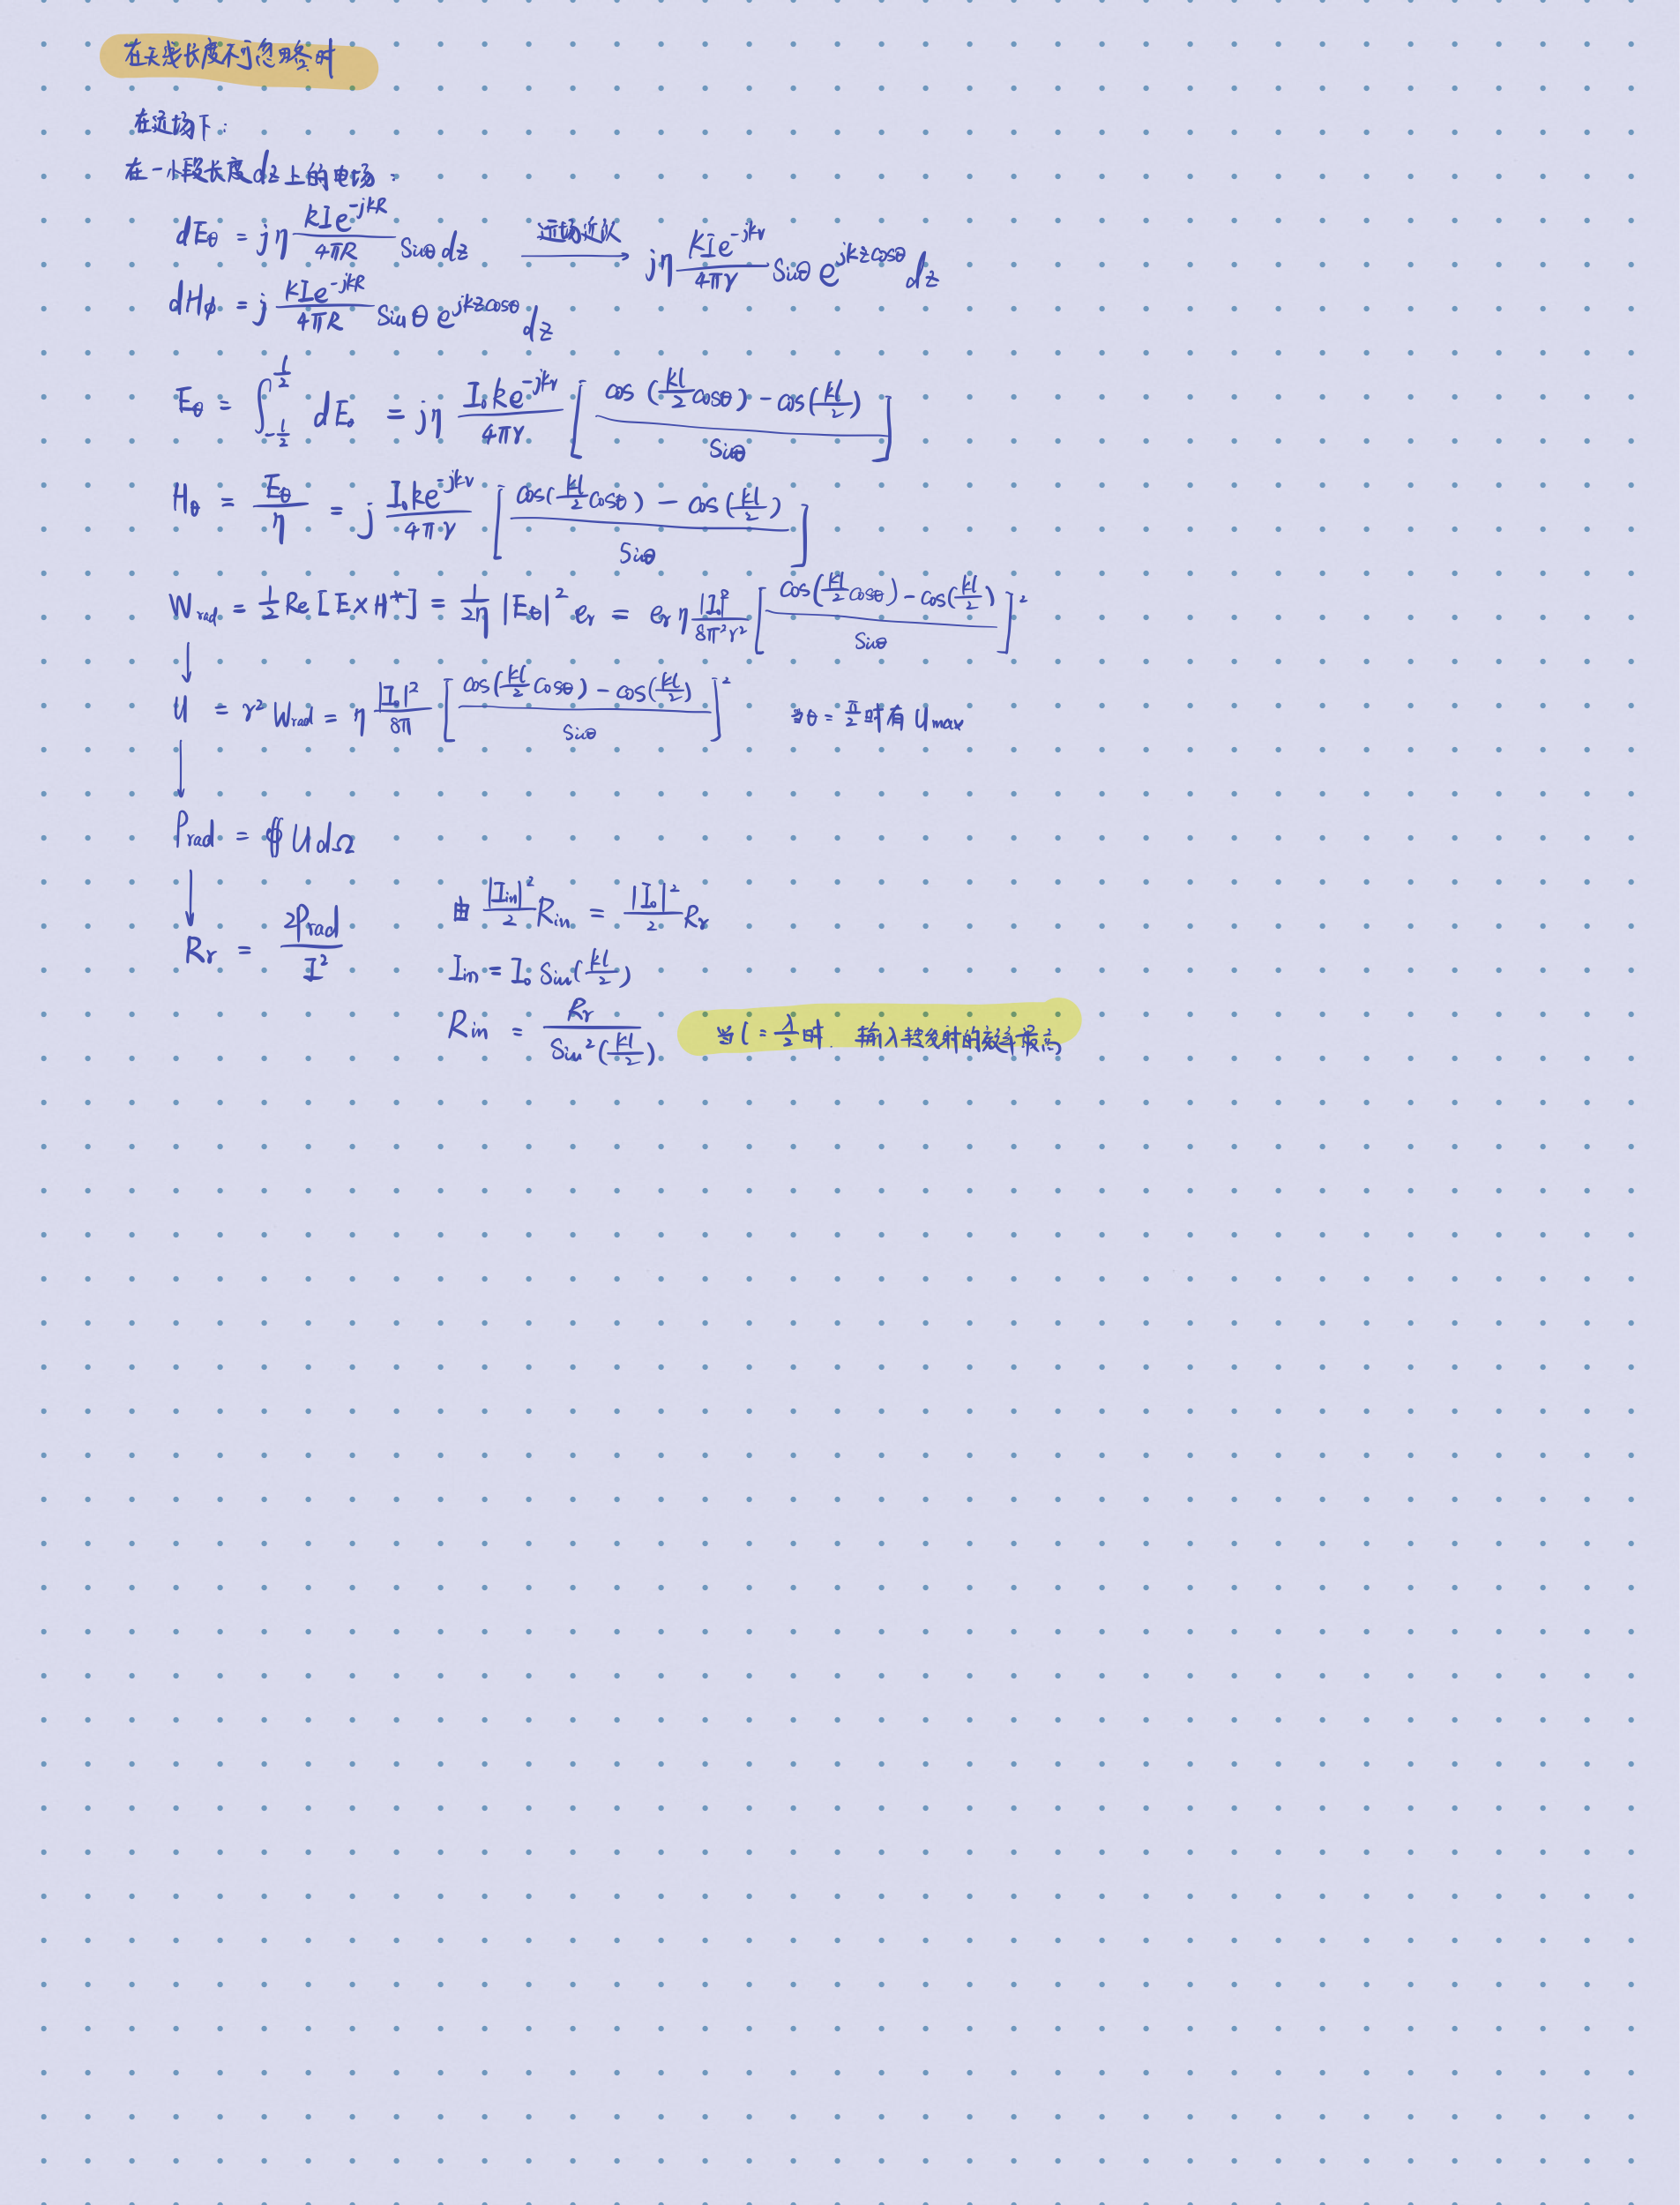 在天线长度不可忽略时
在远场下:
在一小段长度dz上的电场:
dEθ = jη kIe^{-jkR}/4πR Sinθ dz 远场近似 → jη kIe^{-jkr}/4πr Sinθ e^{jkzcosθ} dz
dHφ = j kIe^{-jkR}/4πR Sinθ e^{jkzcosθ} dz
Eθ = ∫_{-l/2}^{l/2} dE₀ = jη I₀ke^{-jkr}/4πr [ (cos(kl/2 cosθ) - cos(kl/2))/Sinθ ]
Hθ = Eθ/η = j I₀ke^{-jkr}/4πr [ (cos(kl/2 cosθ) - cos(kl/2))/Sinθ ]
W_rad = 1/2 Re[E×H*] = 1/2η |Eθ|² e_r = e_r η |I₀|²/8π²r² [ (cos(kl/2 cosθ) - cos(kl/2))/Sinθ ]²
↓
U = r² W_rad = η |I₀|²/8π [ (cos(kl/2 cosθ) - cos(kl/2))/Sinθ ]² 当θ = π/2 时有 U_max
↓
P_rad = ∯ U dΩ
↓
R_r = 2P_rad/I²
由 |I_in|²/2 R_in = |I₀|²/2 R_r
I_in = I₀ Sin(kl/2)
R_in = R_r/Sin²(kl/2) 当 l = λ/2 时. 输入转发射的效率最高